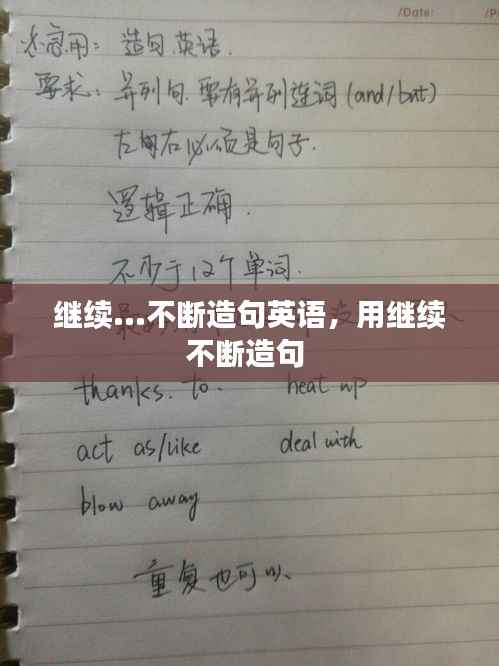 /Date: /P
造句.英语.
要求: 并列句.要有并列连词(and/but)
左句右必须是句子.
逻辑正确.
不少于12个单词.
继续...不断造句英语，用继续
不断造句
thanks. to. heat up
act as/like deal with
blow away
重复也可以、